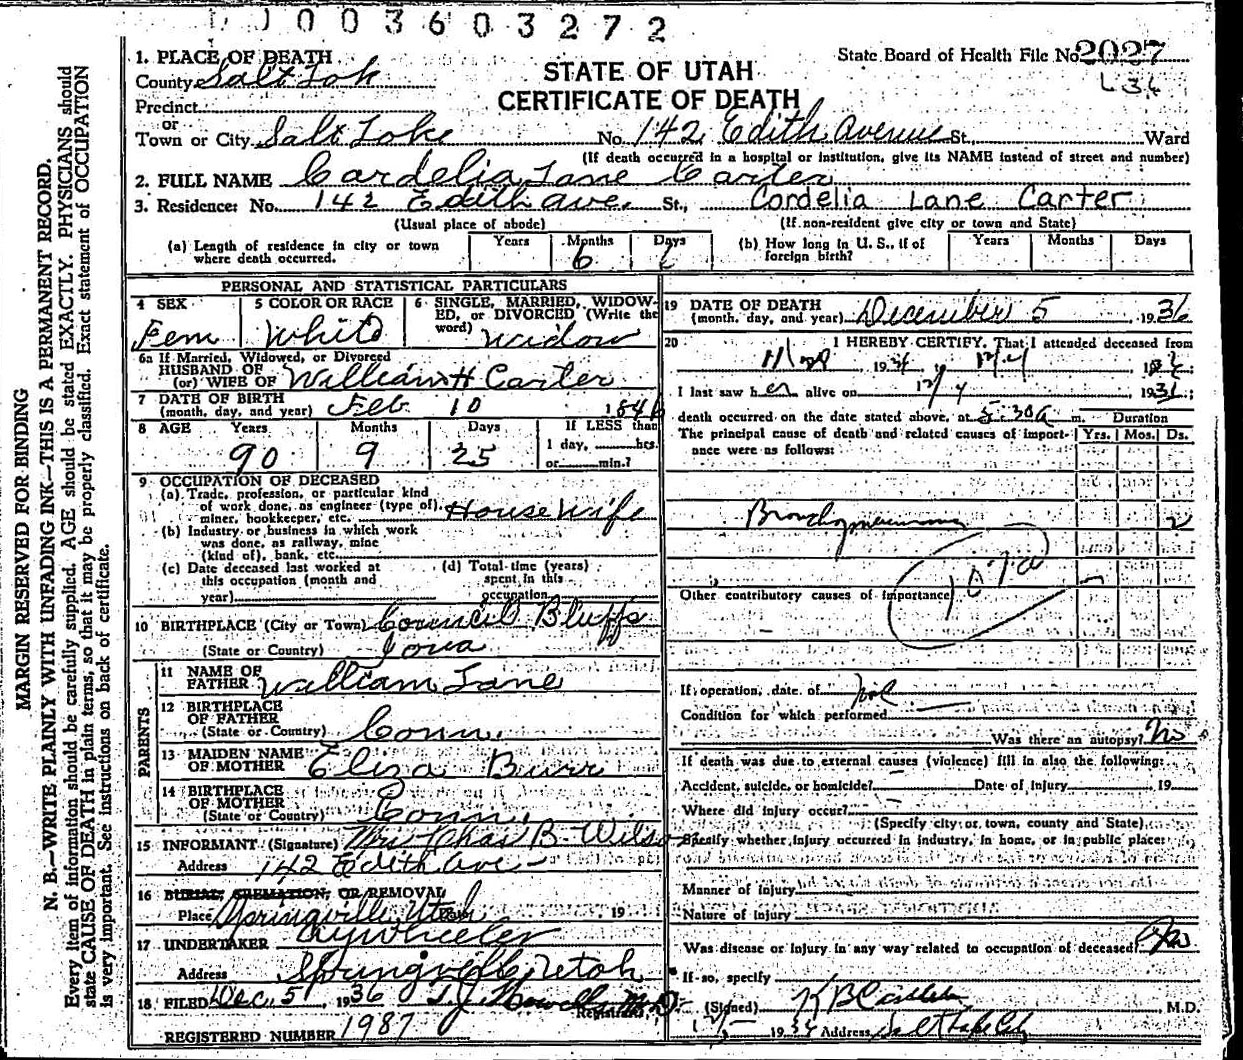 003603272
State Board of Health File No. 2027
L 36
STATE OF UTAH
CERTIFICATE OF DEATH
1. PLACE OF DEATH
County Salt Lak
Precinct
or
Town or City Salt Lake No. 142 Edith Avenue St., Ward
(If death occurred in a hospital or institution, give its NAME instead of street and number)
2. FULL NAME Cardelia Lane Carter
3. Residence: No. 142 Edith Ave. St., Cordelia Lane Carter
(Usual place of abode) (If non-resident give city or town and State)
(a) Length of residence in city or town where death occurred. Years Months 6 Days
(b) How long in U. S., if of foreign birth? Years Months Days
PERSONAL AND STATISTICAL PARTICULARS
4 SEX Fem
5 COLOR OR RACE White
6 SINGLE, MARRIED, WIDOWED, or DIVORCED (Write the word) Widow
6a If Married, Widowed, or Divorced
HUSBAND OF
(or) WIFE OF William H Carter
7 DATE OF BIRTH
(month, day, and year) Feb 10 1846
8 AGE Years 90 Months 9 Days 25 If LESS than
1 day, hrs.
or min.?
9 OCCUPATION OF DECEASED
(a) Trade, profession, or particular kind
of work done, as engineer (type of),
miner, bookkeeper, etc. House Wife
(b) Industry or business in which work
was done, as railway, mine
(kind of), bank, etc.
(c) Date deceased last worked at
this occupation (month and
year)
(d) Total time (years)
spent in this
occupation
10 BIRTHPLACE (City or Town) Council Bluffs
(State or Country) Iowa
PARENTS
11 NAME OF
FATHER William Lane
12 BIRTHPLACE
OF FATHER
(State or Country) Conn.
13 MAIDEN NAME
OF MOTHER Eliza Burr
14 BIRTHPLACE
OF MOTHER
(State or Country) Conn.
15 INFORMANT (Signature) Mrs Chas B. Wilson
Address 142 Edith Ave
16 BURIAL, CREMATION, OR REMOVAL
Place Springville Utah 19
17 UNDERTAKER Wheeler
Address Springville Utah
18 FILED Dec. 5, 1936 T. J. Howells M.D.
Registrar
REGISTERED NUMBER 1987
19 DATE OF DEATH
(month, day, and year) December 5, 1936
20 I HEREBY CERTIFY, That I attended deceased from
I last saw her alive on 12/4
death occurred on the date stated above, at 5:30a m. Duration
The principal cause of death and related causes of importance were as follows: Yrs. Mos. Ds.
Bronchopneumonia 2
107a
Other contributory causes of importance
If operation, date of
Condition for which performed
Was there an autopsy? No
If death was due to external causes (violence) fill in also the following:
Accident, suicide, or homicide? Date of Injury 19
Where did injury occur?
(Specify city or town, county and State)
Specify whether injury occurred in industry, in home, or in public place:
Manner of Injury
Nature of Injury
Was disease or injury in any way related to occupation of deceased? No
If so, specify
(Signed) K B Castleton M.D.
12/5 1936 Address Salt Lake City
MARGIN RESERVED FOR BINDING
N. B.—WRITE PLAINLY WITH UNFADING INK—THIS IS A PERMANENT RECORD.
Every item of information should be carefully supplied. AGE should be stated EXACTLY. PHYSICIANS should
state CAUSE OF DEATH in plain terms, so that it may be properly classified. Exact statement of OCCUPATION
is very important. See instructions on back of certificate.